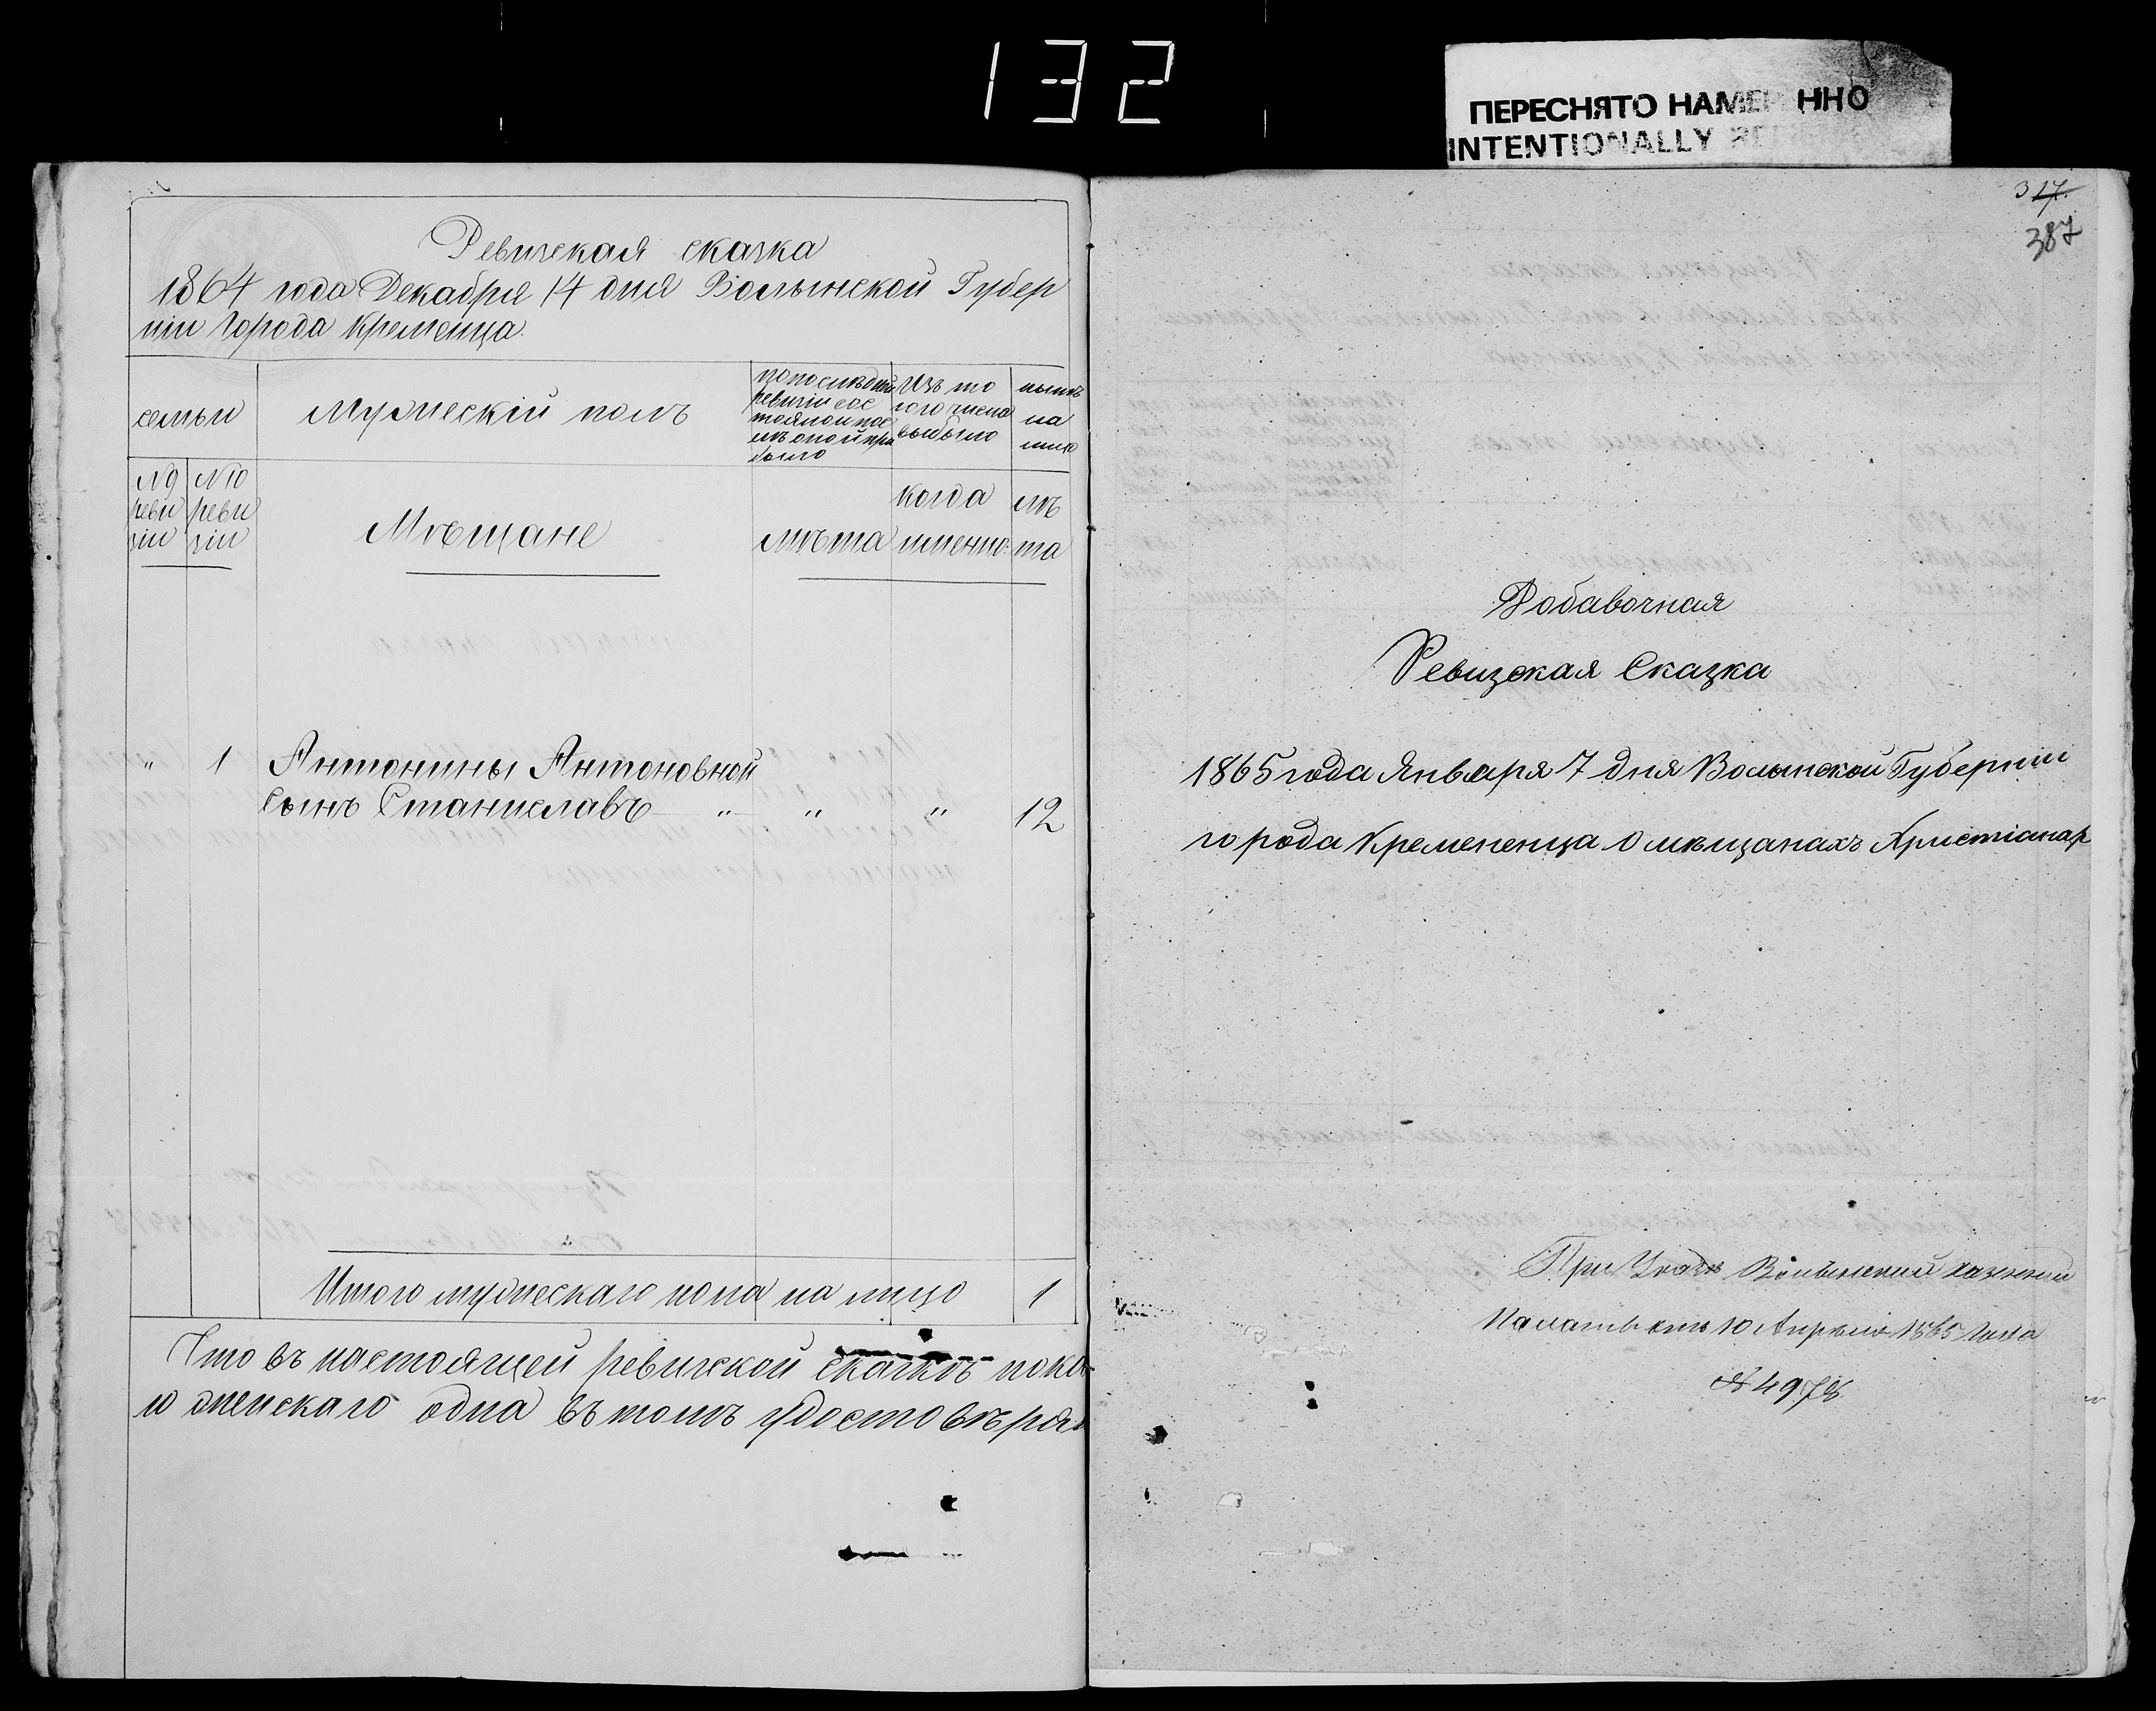 132
ПЕРЕСНЯТО НАМЕ ННО
INTENTIONALLY
Ревизская сказка
1864 года Декабря 14 дня Волынской Губер
ніи Города Кременца.
семьи
Мужескій полъ
по последней
ревизіи сос
тояло и пос
лѣ оной при
было
Изъ то
го числа
выбыло
нынѣ
на
лицо
N 9
реви
зіи
N 10
реви
зіи
Мѣщане
лѣта
когда
именно:
лѣ
та
" 1 Антонины Антоновной
сынъ Станиславъ " " " 12
Итого мужескаго пола на лицо 1
Что въ настоящей ревизской сказкѣ пока
го женскаго одна въ томъ удостовѣряю
317.
387
Добавочная
Ревизская Сказка
1865 года Января 7 дня Волынской Губерніи
города Кремененца о мѣщанахъ Христіанах
При Указѣ Волынской казенной
Палаты отъ 10 Апрѣля 1865 года
№ 4978